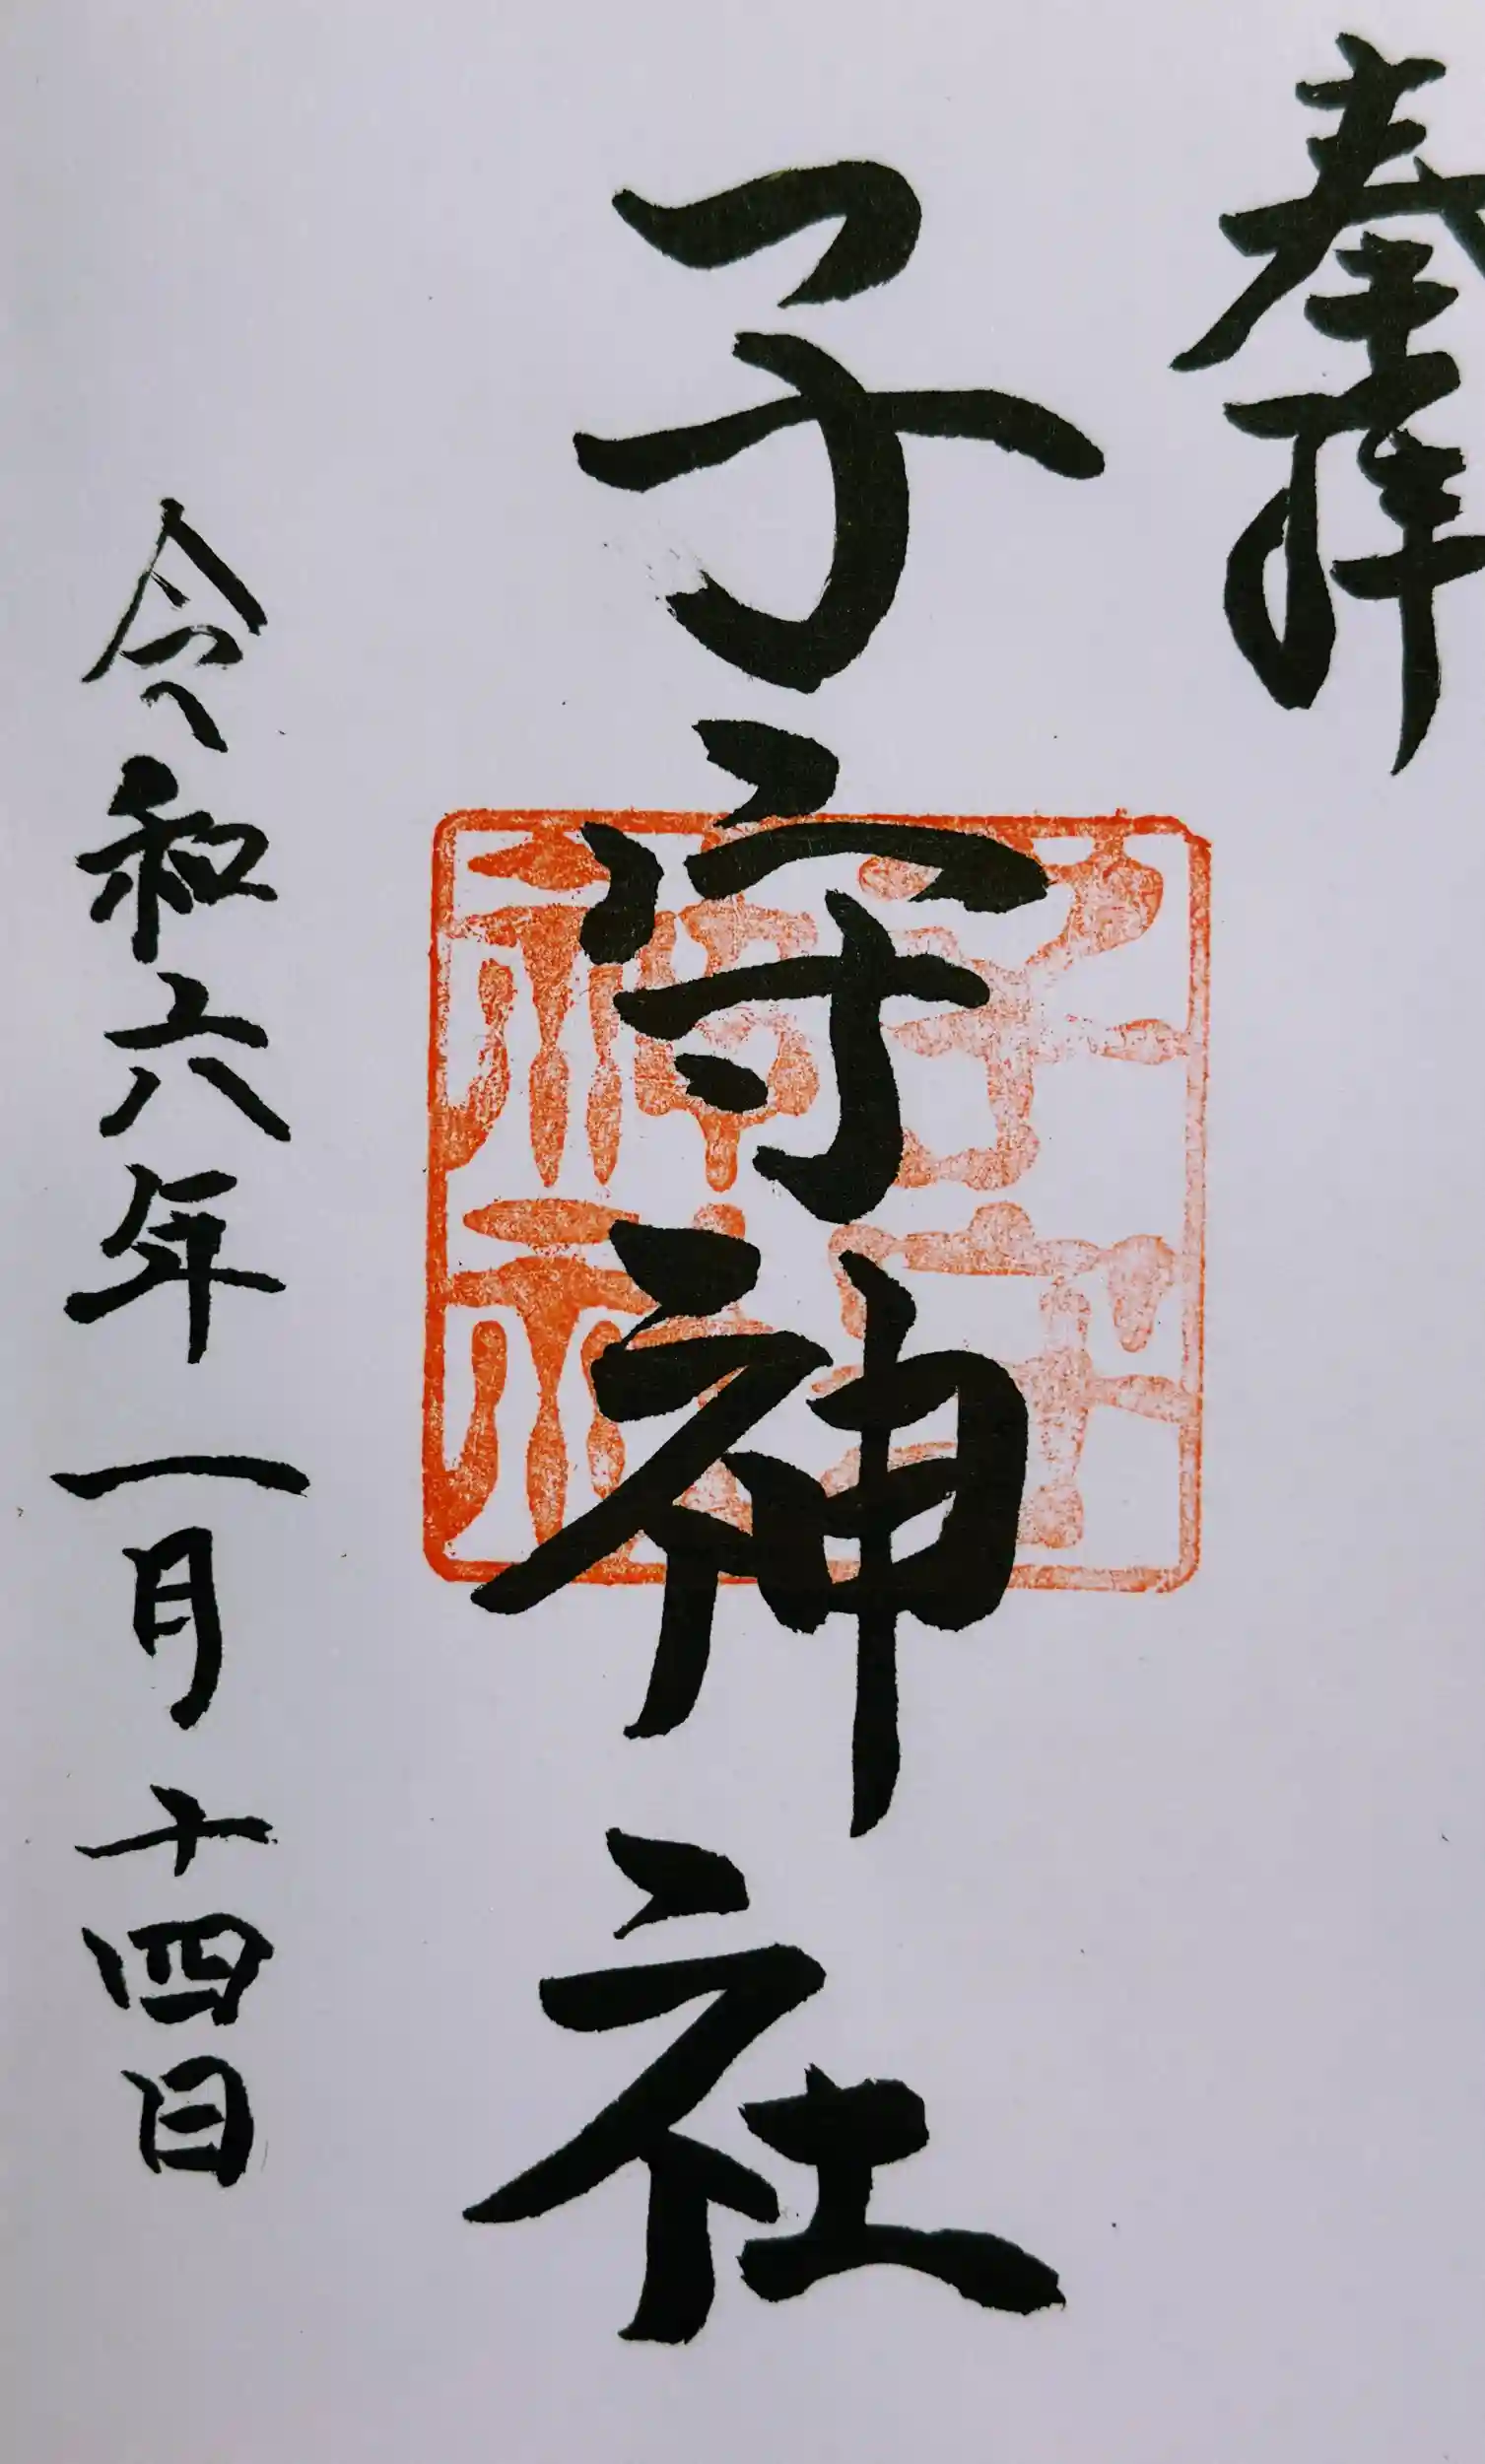 奉拝
子守神社
子守神社
令和六年一月十四日